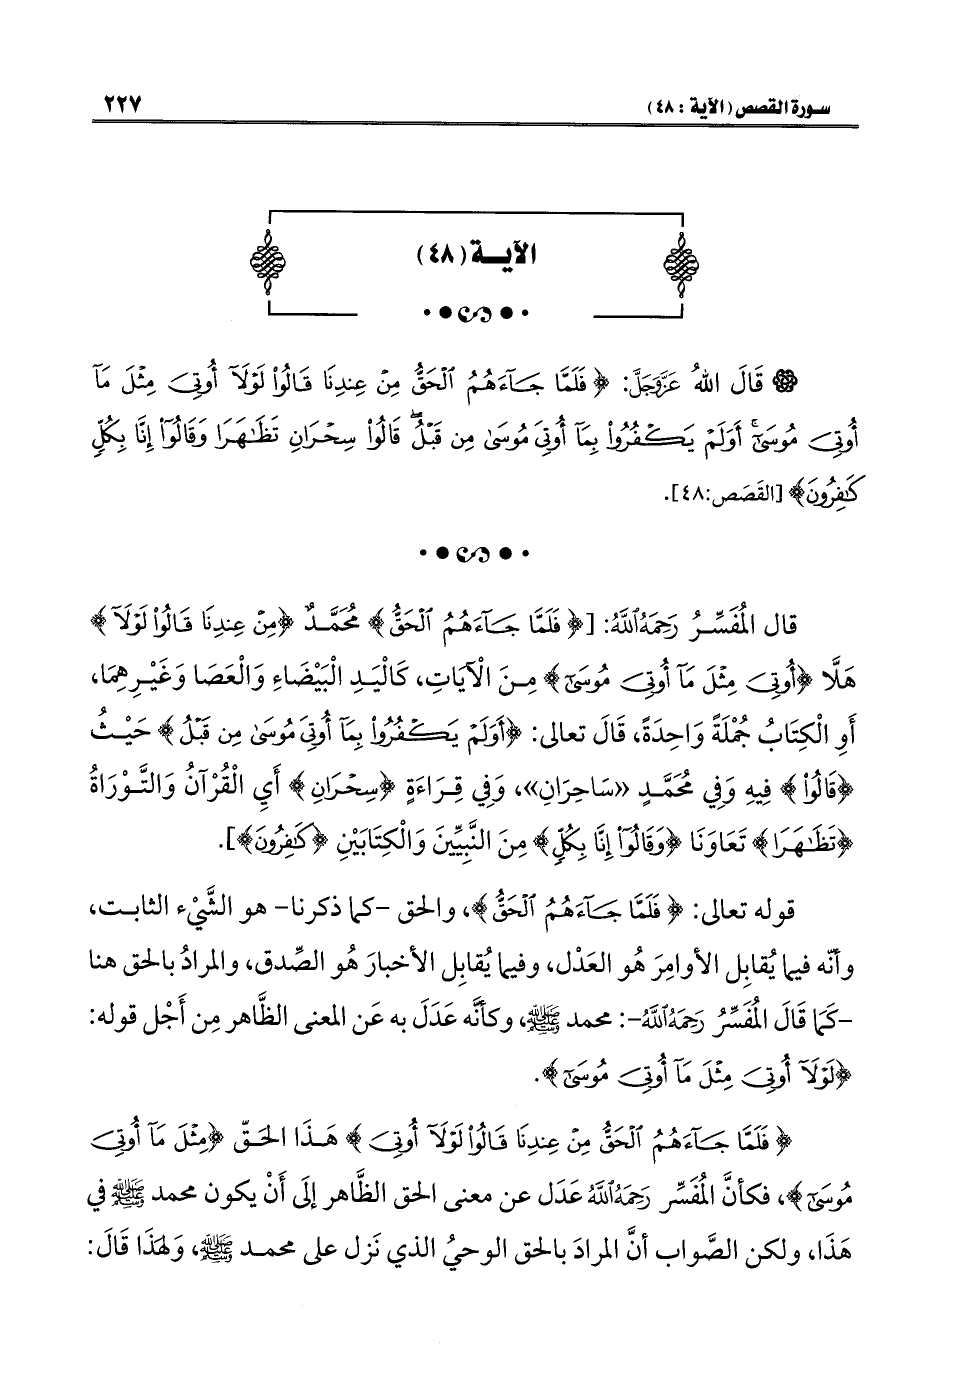 سورة القصص (الآية : ٤٨)
٢٢٧
الآيـــة (٤٨)
قَالَ اللهُ عَزَّوَجَلَّ: ﴿فَلَمَّا جَآءَهُمُ ٱلْحَقُّ مِنْ عِندِنَا قَالُوا۟ لَوْلَآ أُوتِىَ مِثْلَ مَآ
أُوتِىَ مُوسَىٰٓ ۚ أَوَلَمْ يَكْفُرُوا۟ بِمَآ أُوتِىَ مُوسَىٰ مِن قَبْلُ ۖ قَالُوا۟ سِحْرَانِ تَظَـٰهَرَا وَقَالُوٓا۟ إِنَّا بِكُلٍّ
كَـٰفِرُونَ﴾ [القَصَص:٤٨].
قال المُفَسِّرُ رَحِمَهُ اللَّهُ: [﴿فَلَمَّا جَآءَهُمُ ٱلْحَقُّ﴾ مُحَمَّدٌ ﴿مِنْ عِندِنَا قَالُوا۟ لَوْلَآ﴾
هَلَّا ﴿أُوتِىَ مِثْلَ مَآ أُوتِىَ مُوسَىٰٓ﴾ مِنَ الْآيَاتِ، كَالْيَدِ الْبَيْضَاءِ وَالْعَصَا وَغَيْرِهِمَا،
أَوِ الْكِتَابُ جُمْلَةً وَاحِدَةً، قَالَ تعالى: ﴿أَوَلَمْ يَكْفُرُوا۟ بِمَآ أُوتِىَ مُوسَىٰ مِن قَبْلُ﴾ حَيْثُ
﴿قَالُوا۟﴾ فِيهِ وَفِي مُحَمَّدٍ «سَاحِرَانِ»، وَفِي قِرَاءَةٍ ﴿سِحْرَانِ﴾ أَيِ الْقُرْآنُ وَالتَّوْرَاةُ
﴿تَظَـٰهَرَا﴾ تَعَاوَنَا ﴿وَقَالُوٓا۟ إِنَّا بِكُلٍّ﴾ مِنَ النَّبِيِّينَ وَالْكِتَابَيْنِ ﴿كَـٰفِرُونَ﴾].
قوله تعالى: ﴿فَلَمَّا جَآءَهُمُ ٱلْحَقُّ﴾، والحق -كما ذكرنا- هو الشَّيْء الثابت،
وأنّه فيما يُقابل الأوامِرَ هُو العَدْل، وفيما يُقابِل الأخبارَ هُو الصِّدق، والمرادُ بالحق هنا
-كَمَا قَالَ المُفَسِّرُ رَحِمَهُ اللَّهُ-: محمد ﷺ، وكأنَّه عَدَلَ به عَن المعنى الظَّاهر مِن أَجْل قوله:
﴿لَوْلَآ أُوتِىَ مِثْلَ مَآ أُوتِىَ مُوسَىٰٓ﴾.
﴿فَلَمَّا جَآءَهُمُ ٱلْحَقُّ مِنْ عِندِنَا قَالُوا۟ لَوْلَآ أُوتِىَ﴾ هَذَا الحَقّ ﴿مِثْلَ مَآ أُوتِىَ
مُوسَىٰٓ﴾، فكأنَّ المُفَسِّر رَحِمَهُ اللَّهُ عَدَل عن معنى الحق الظَّاهر إلَى أَنْ يكون محمد ﷺ في
هَذَا، ولكن الصَّواب أنَّ المرادَ بالحق الوحيُ الذي نَزل على محمد ﷺ، وَلِهَذَا قَالَ: